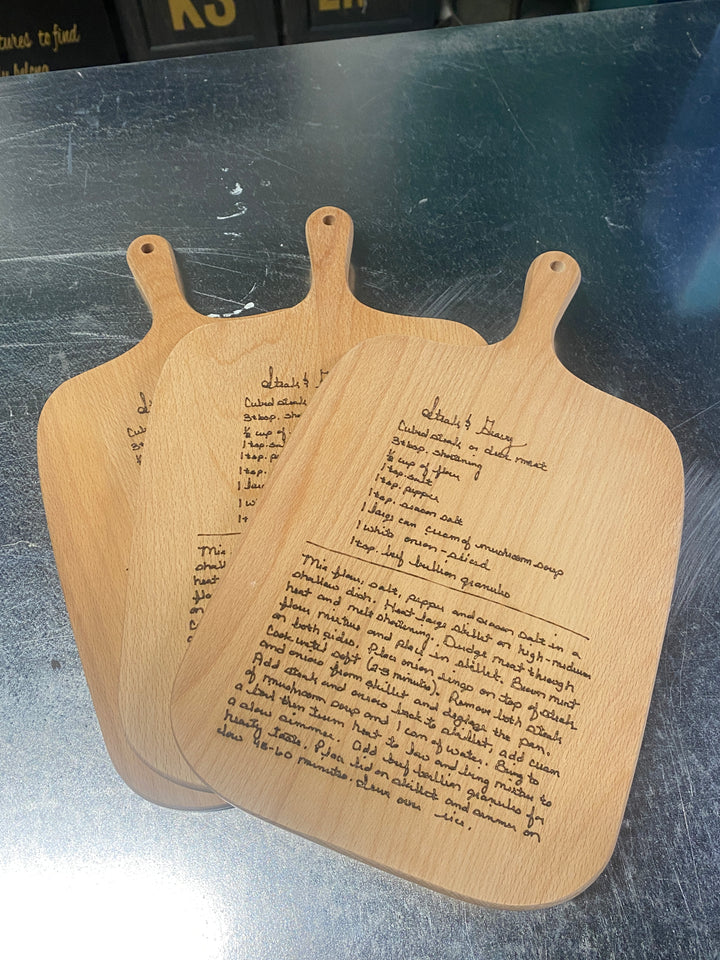 tures to find
KS
belong
Steak & Gravy
Cubed steak or deer meat
3 tbsp. shortening
½ cup of flour
1 tsp. salt
1 tsp. pepper
1 tsp. season salt
1 large can cream of mushroom soup
1 white onion - sliced
1 tsp. beef bullion granules
Mix flour, salt, pepper and season salt in a
shallow dish. Heat large skillet on high-medium
heat and melt shortening. Dredge meat through
flour mixture and place in skillet. Brown meat
on both sides. Place onion rings on top of steak
Cook until soft (2-3 minutes). Remove both steak
and onions from skillet and deglaze the pan.
Add steak and onions back to skillet, add cream
of mushroom soup and 1 can of water. Bring to
a boil then turn heat to low and bring mixture to
a slow simmer. Add beef bullion granules for
hearty taste. Place lid on skillet and simmer on
low 45-60 minutes. Serve over rice.
Steak &
Cubed steak
3 tbsp. sho
½ cup of
1 tsp. salt
1 tsp. p
1 tsp.
1 lar
1 w
1 t
Mix
shall
heat